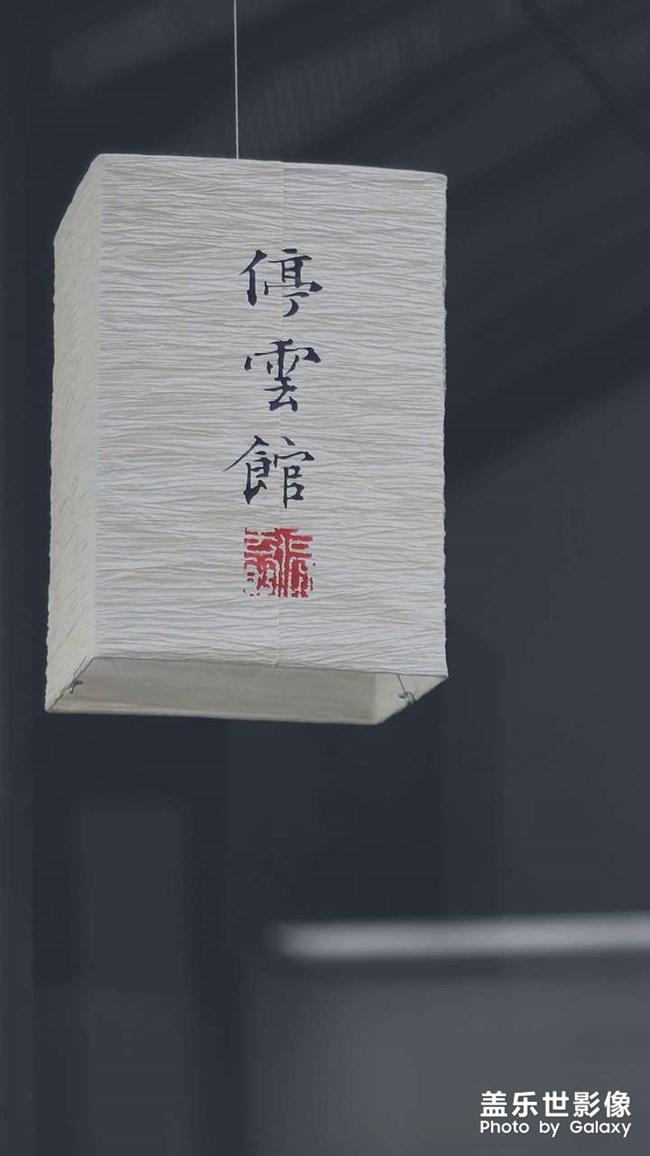 停雲館
盖乐世影像
Photo by Galaxy